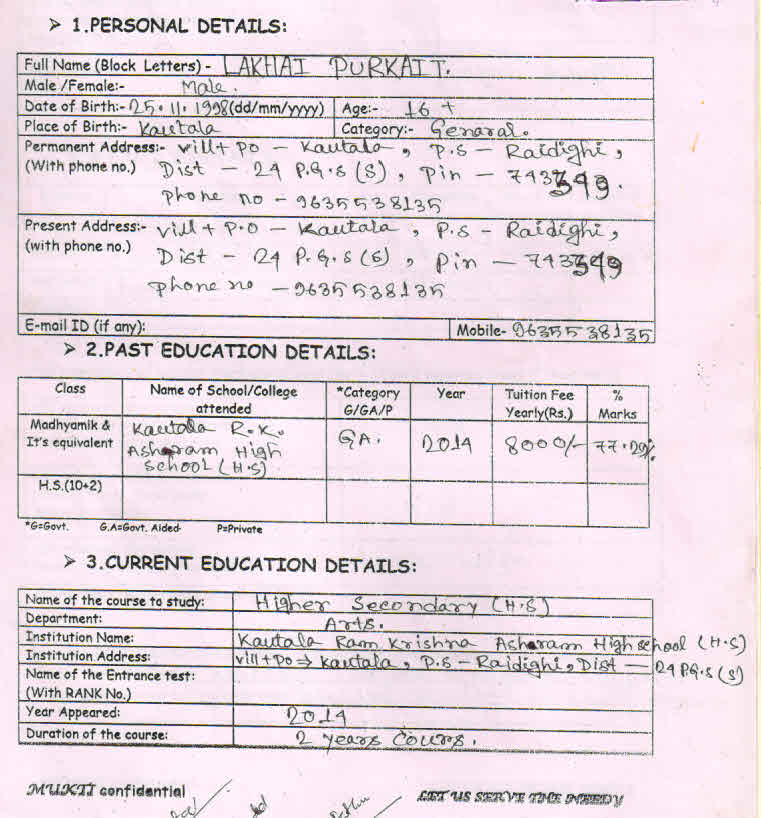 ➢ 1.PERSONAL DETAILS:
Full Name (Block Letters) - LAKHAI PURKAIT.
Male /Female:- Male.
Date of Birth:- 25.11.1998 (dd/mm/yyyy) Age:- 16 +
Place of Birth:- Kautala Category:- Genaral.
Permanent Address:- vill+ po - Kautala, P.S - Raidighi,
(With phone no.) Dist - 24 P.G.S (S), Pin - 743349.
phone no - 9635538135
Present Address:- vill + P.O - Kautala, P.S - Raidighi,
(with phone no.) Dist - 24 P.G.S (S), Pin - 743349
phone no - 9635538135
E-mail ID (if any): Mobile- 9635538135
➢ 2.PAST EDUCATION DETAILS:
Class Name of School/College *Category Year Tuition Fee %
attended G/GA/P Yearly(Rs.) Marks
Madhyamik & Kautala R.K. GA. 2014 8000/- 77.29%
It's equivalent Asharam High
School (H.S)
H.S.(10+2)
*G=Govt. G.A=Govt. Aided P=Private
➢ 3.CURRENT EDUCATION DETAILS:
Name of the course to study: Higher Secondary (H.S)
Department: Arts.
Institution Name: Kautala Ram Krishna Asharam High school (H.S)
Institution Address: vill+po ⇒ Kautala, P.S - Raidighi, Dist - 24 P.G.S (S)
Name of the Entrance test:
(With RANK No.)
Year Appeared: 2014
Duration of the course: 2 years Cours.
MUKTI confidential LET US SERVE THE NEEDY